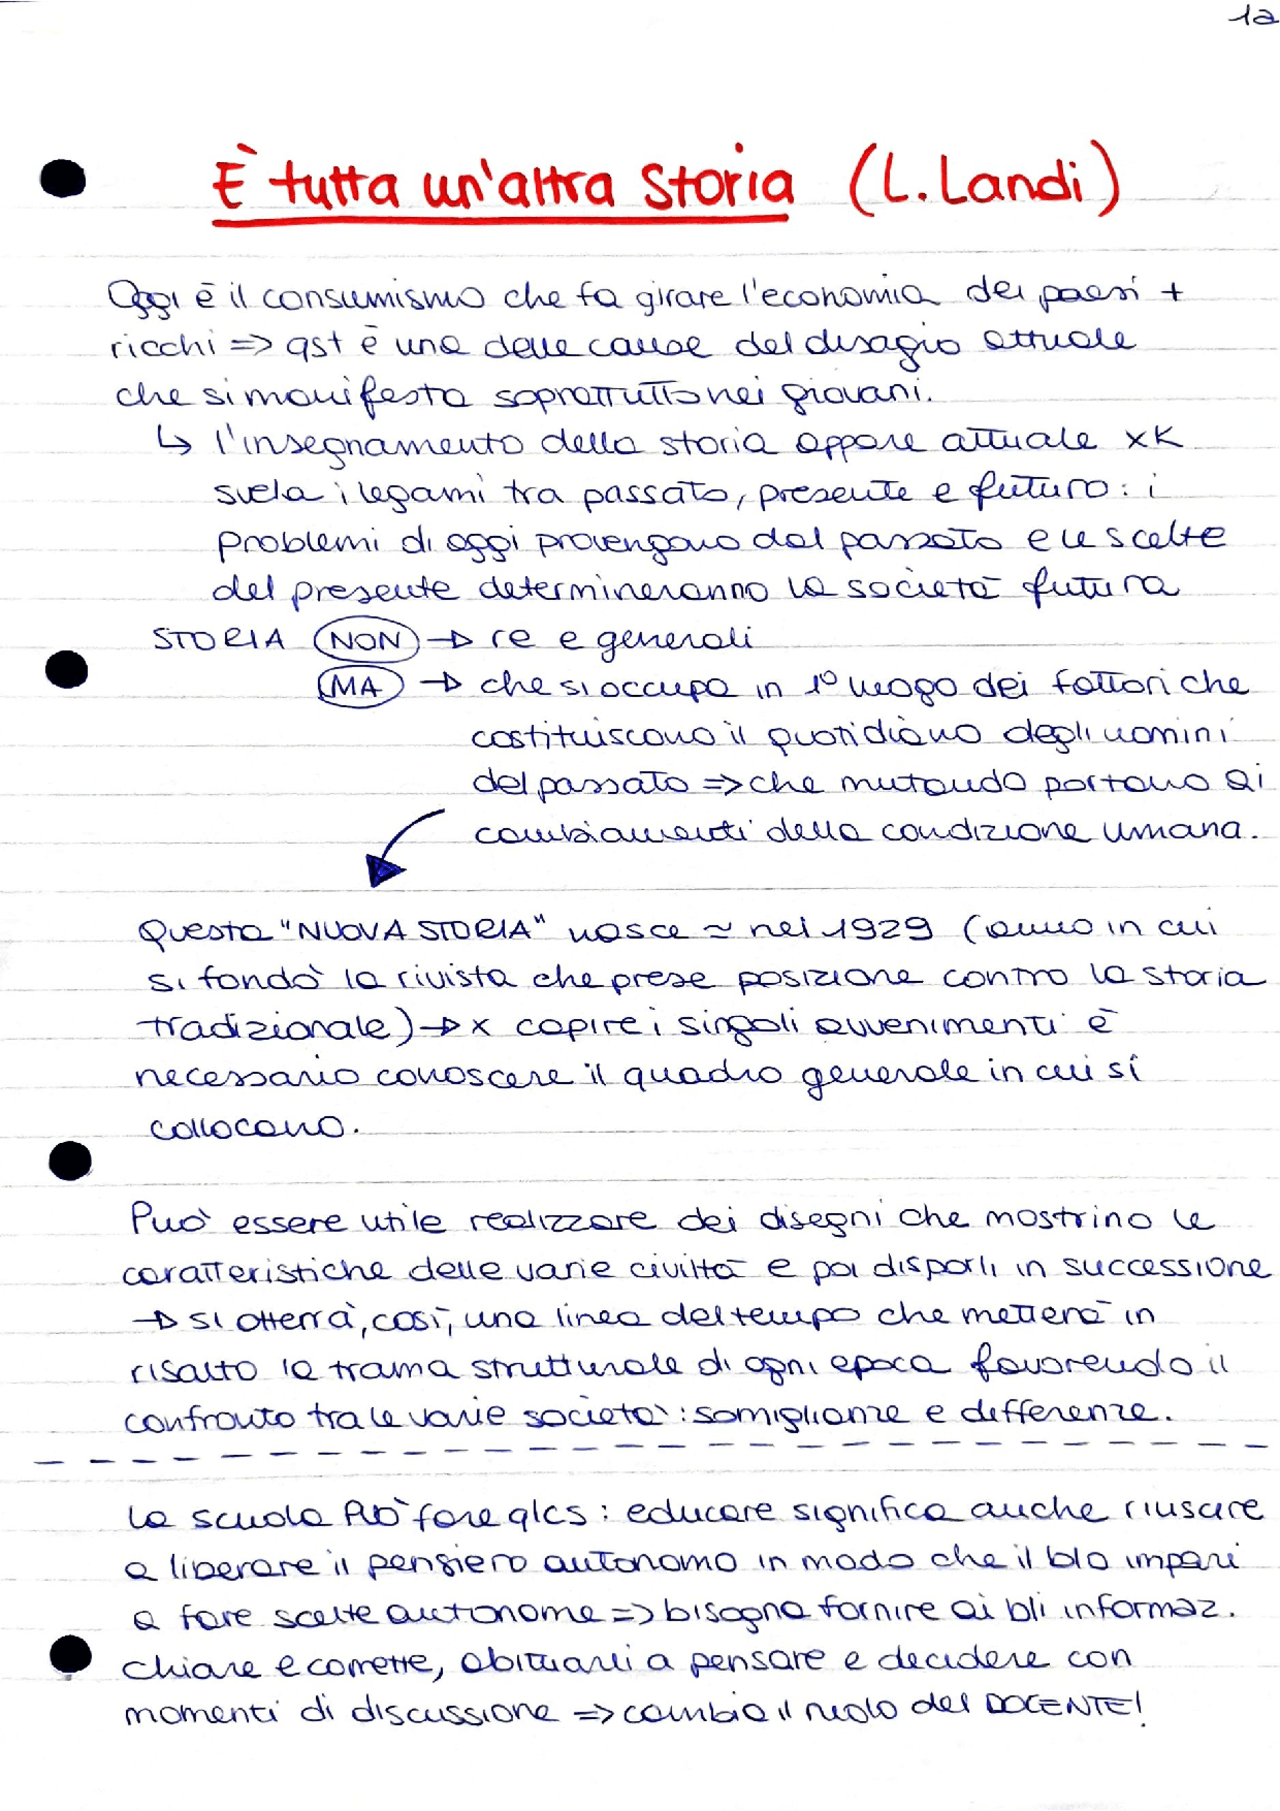 1a
È tutta un'altra storia (L. Landi)
Oggi è il consumismo che fa girare l'economia dei paesi +
ricchi => qst è una delle cause del disagio attuale
che si manifesta soprattutto nei giovani.
↳ l'insegnamento della storia appare attuale xK
svela i legami tra passato, presente e futuro: i
problemi di oggi provengono dal passato e le scelte
del presente determineranno la società futura
STORIA NON → re e generali
MA → che si occupa in 1° luogo dei fattori che
costituiscono il quotidiano degli uomini
del passato => che mutando portano ai
cambiamenti della condizione umana.
Questa "NUOVA STORIA" nasce ≃ nel 1929 (anno in cui
si fondò la rivista che prese posizione contro la storia
tradizionale) → x capire i singoli avvenimenti è
necessario conoscere il quadro generale in cui si
collocano.
Può essere utile realizzare dei disegni che mostrino le
caratteristiche delle varie civiltà e poi disporli in successione
→ si otterrà, così, una linea del tempo che metterà in
risalto la trama strutturale di ogni epoca favorendo il
confronto tra le varie società: somiglianze e differenze.
La scuola può fare qlcs: educare significa anche riuscire
a liberare il pensiero autonomo in modo che il b/o impari
a fare scelte autonome => bisogna fornire ai b/i informaz.
chiare e corrette, abituarli a pensare e decidere con
momenti di discussione => cambia il ruolo del DOCENTE!